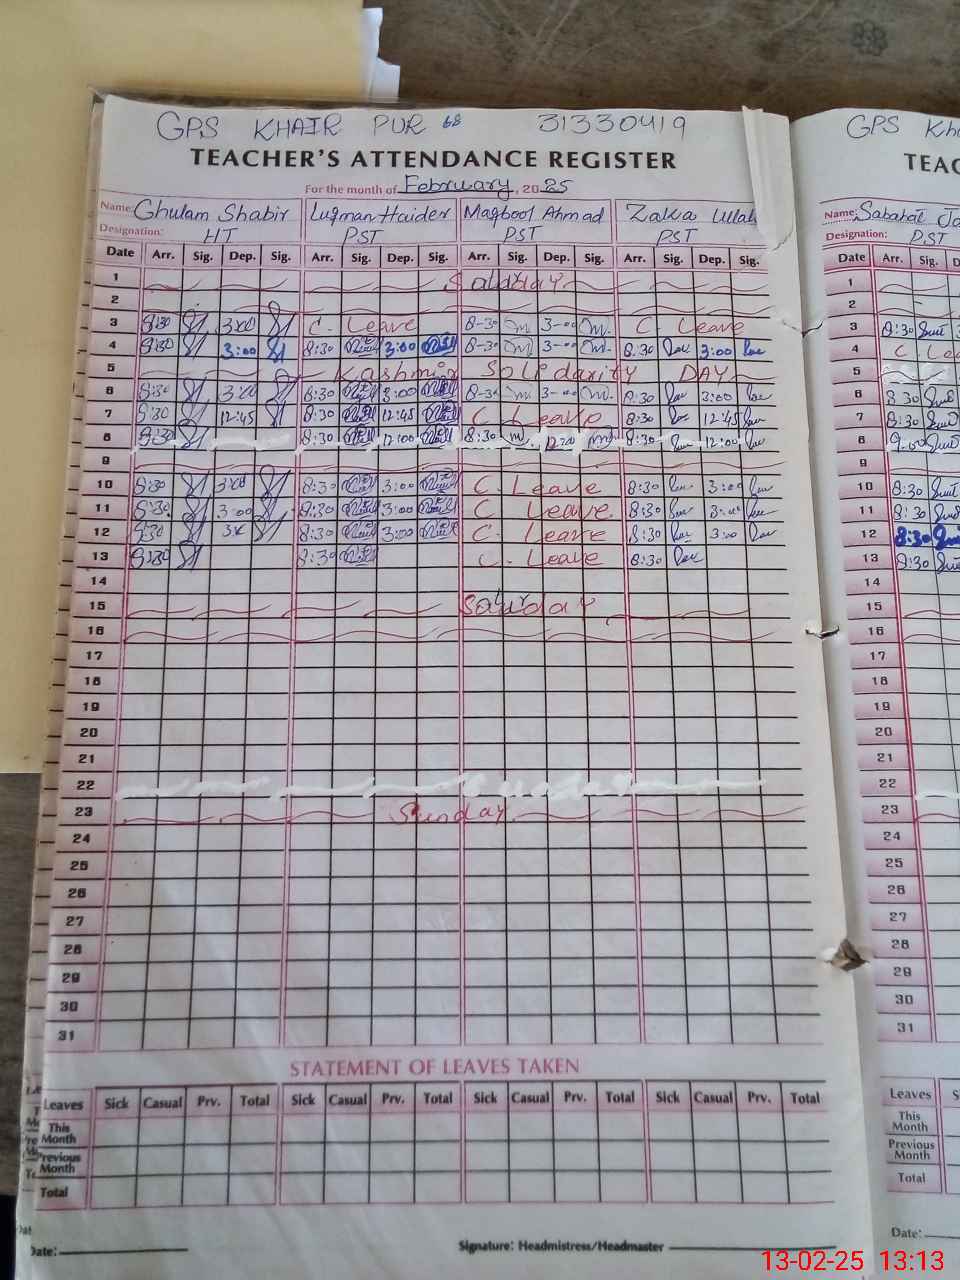 GPS KHAIR PUR 68 31330419
TEACHER'S ATTENDANCE REGISTER
For the month of February, 2025
Name: Ghulam Shabir Luqman Haider Maqbool Ahmad Zaka Ullah
Designation: HT PST PST PST
Date Arr. Sig. Dep. Sig. Arr. Sig. Dep. Sig. Arr. Sig. Dep. Sig. Arr. Sig. Dep. Sig.
1 Saturday
2
3 8:30 3:00 C. Leave 8-30 3-00 C. Leave
4 8:30 3:00 8:30 3:00 8-30 3-00 8:30 3:00
5 Kashmir Solidarity DAY
6 8:30 3:00 8:30 3:00 8-30 3-00 8:30 3:00
7 8:30 12:45 8:30 12:45 C. Leave 8:30 12:45
8 8:30 8:30 12:00 8:30 12:00 8:30 12:00
9
10 8:30 3:00 8:30 3:00 C. Leave 8:30 3:00
11 8:30 3:00 8:30 3:00 C. Leave 8:30 3:00
12 8:30 8:30 3:00 C. Leave 8:30 3:00
13 8:30 8:30 C. Leave 8:30
14
15 Saturday
16
17
18
19
20
21
22
23 Sunday
24
25
26
27
28
29
30
31
STATEMENT OF LEAVES TAKEN
Leaves Sick Casual Prv. Total Sick Casual Prv. Total Sick Casual Prv. Total Sick Casual Prv. Total
This Month
Previous Month
Total
Date:
Signature: Headmistress/Headmaster
GPS Kh
TEAC
Name: Sabahat
Designation: PST
Date Arr. Sig.
1
2
3 8:30
4 C. Lea
5
6 8:30
7 8:30
8 9:00
9
10 8:30
11 8:30
12 8:30
13 8:30
14
15
16
17
18
19
20
21
22
23
24
25
26
27
28
29
30
31
Leaves
This Month
Previous Month
Total
Date:
13-02-25 13:13